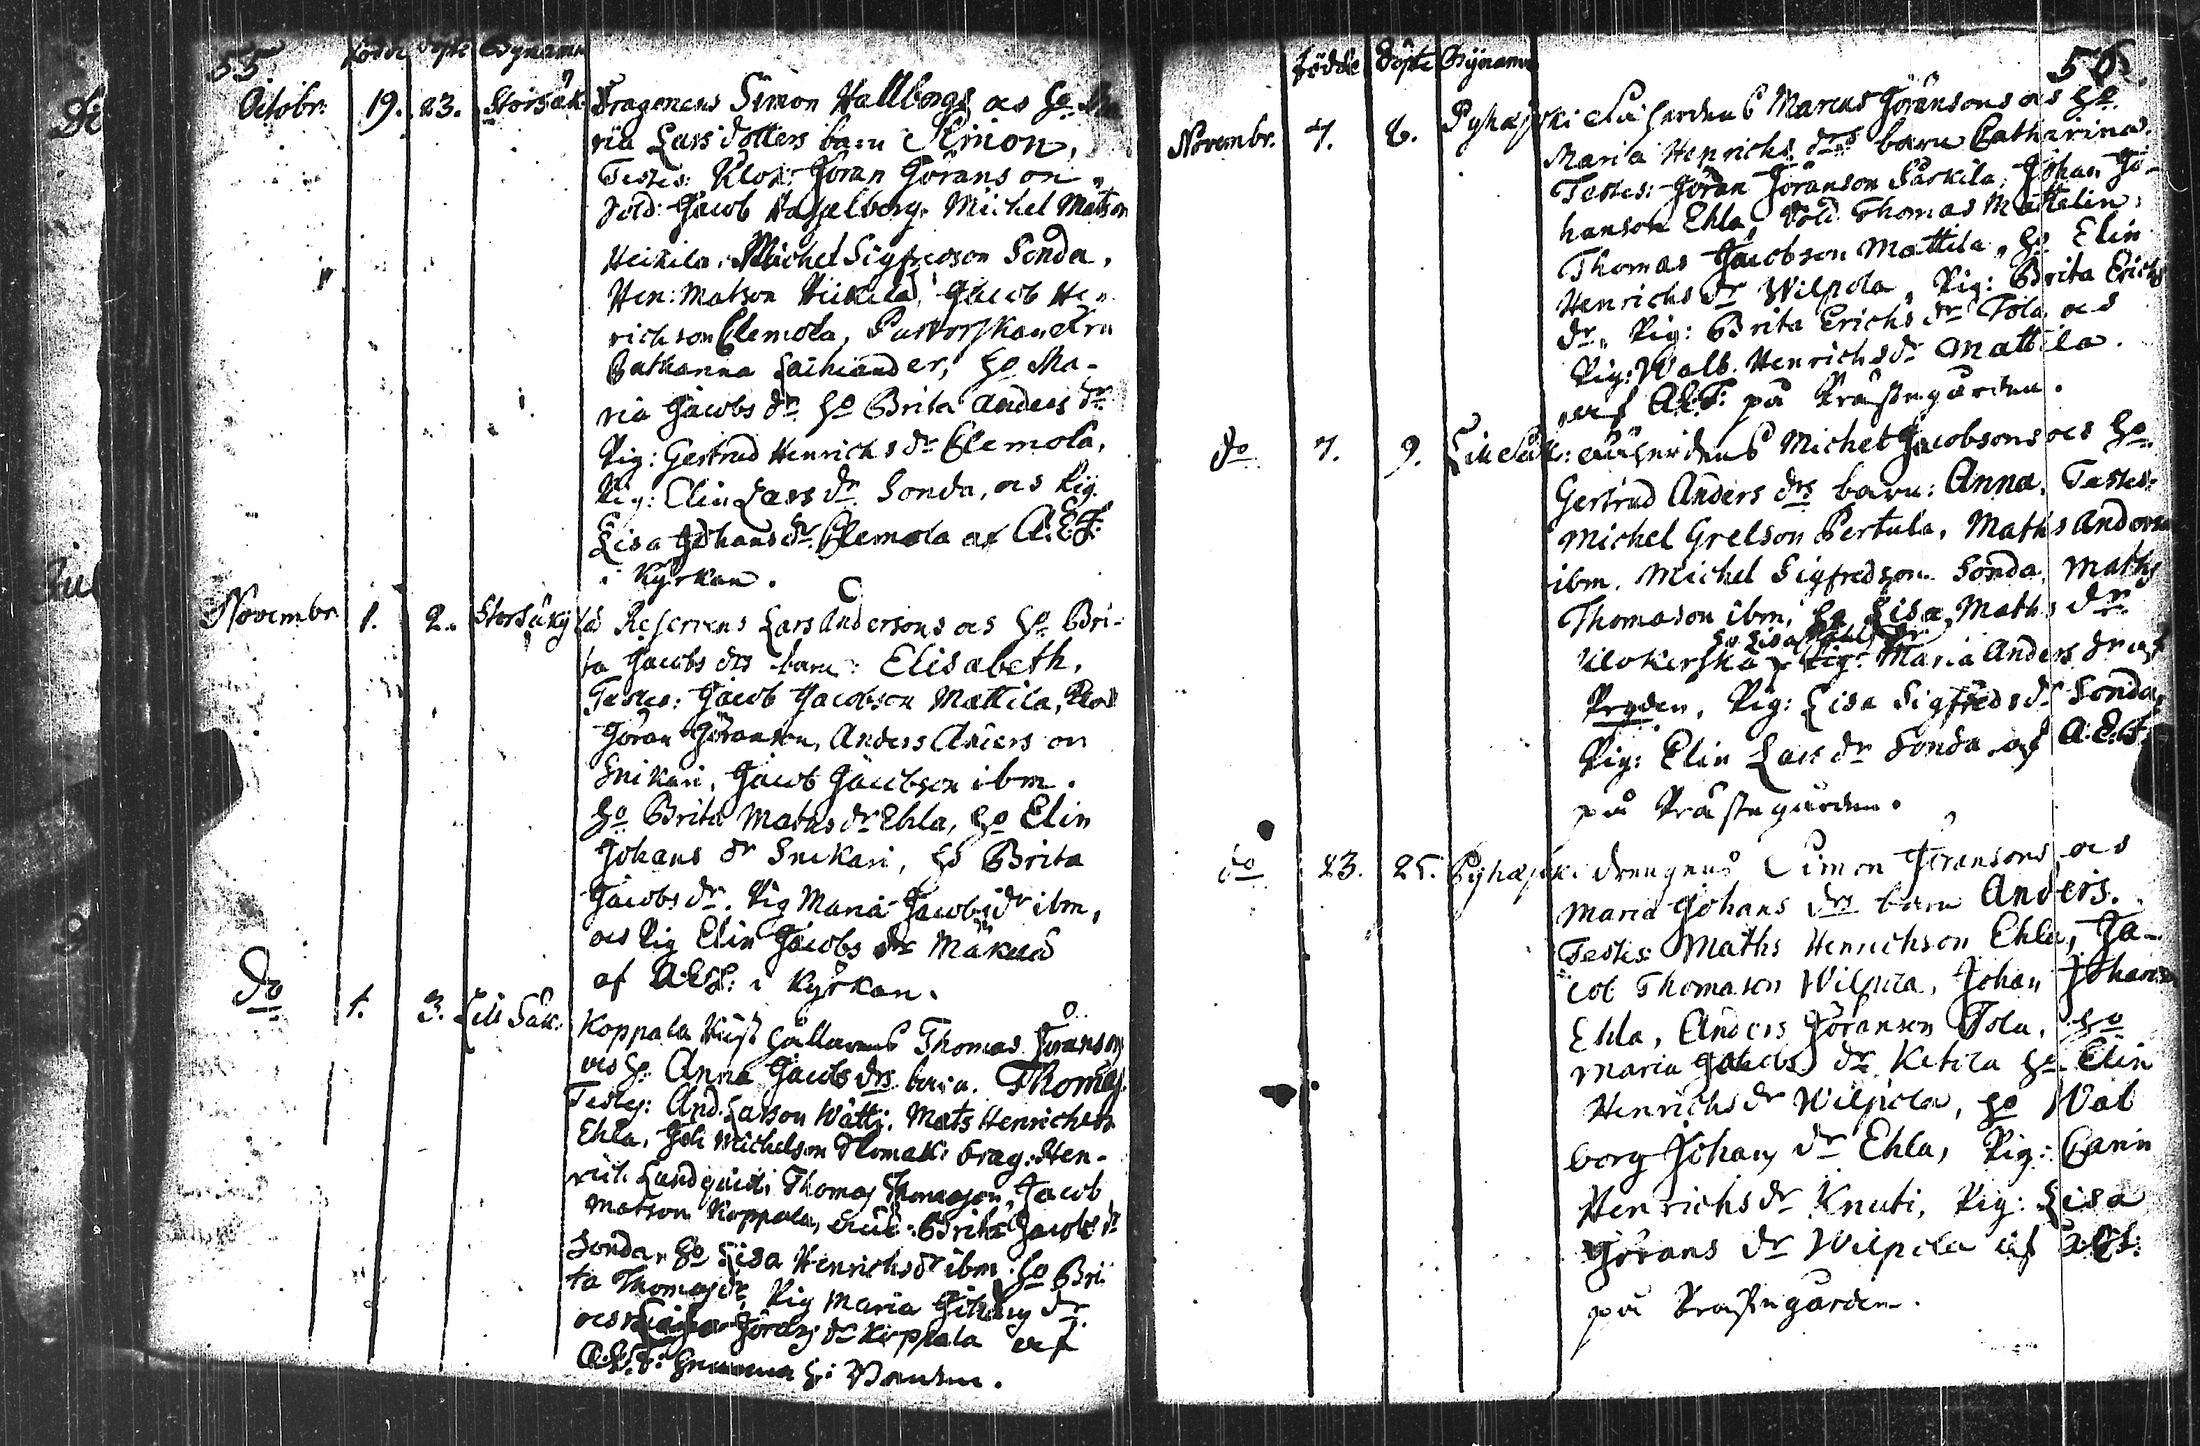 55.
födde döpte Bynamn
Octobr: 19. 23. Storsäk. Dragonens Simon Hallbergs ocs ho Ma
ria Lars dotters barn Simon,
Testes: Klok: Jöran Görans on,
Sold: Jacob Hasselberg, Michel Matson
Heikila, Michel Sigfredson Sonda,
Hen: Matson Heikila, Jacob He
richson Clemola, Pastorskan Fru
Catharina Laihiander, ho Ma-
ria Jacobs dr ho Brita Anders dr
Pig: Gertrud Henrichs dr Clemola,
Pig: Elin Lars dr Sonda, ocs Pig.
Lisa Johans dr Clemola af A.E.F:
i Kyrkan.
Novembr 1. 2. Storsäky
Reservens Lars Andersons ocs ho Bri-
ta Jacobs drs barn: Elisabeth,
Testes: Jacob Jacobson Mattila, Klok
Jöran Göranson, Anders Anders on
Snikari, Jacob Jacobson ibm.
ho Brita Maths dr Ehla, ho Elin
Johans dr Snikari, ho Brita
Jacobs dr. Pig Maria Jacobs dr ibm,
ocs Pig Elin Jacobs dr
af A.E.F: i Kyrkan.
do 1. 3. Lill Säk:
Koppala Thomas Göransons
ocs ho Anna Jacobs drs barn. Thomas.
Testes: And. Larson Wätti, Mats Henrichson
Ehla, Joh Michelson drag: Hen-
rich Lundqvist, Thomas Thomason, Jacob
Matson Koppala, Brita Jacobs dr
Sonda, ho Lisa Henrichs dr ibm, ho Bri
ta Thomas dr, Pig Maria Johans dr
ocs Görans dr Koppala af
A.E.F:
56.
födde döpte Bynamn
Novembr. 7. 8. Pyhäjoki Marcus Göransons ocs ho
Maria Henrichs drs barn Catharina.
Testes: Jöran Göranson Särkila, Johan Jo-
hanson Ehla, Sold Thomas Mattelin,
Thomas Jacobson Mattila, ho Elin
Henrichs dr Wilpola, Pig: Brita Erichs
dr, Pig: Brita Erichs dr Tola, ocs
Pig: Walb. Henrichs dr Mattila.
af A.E.F: på Prästegården.
do 7. 9. Michel Jacobsons ocs ho
Gertrud Anders drs barn: Anna, Testes:
Michel Grelson Pertula, Maths Anderson
ibm. Michel Sigfredson Sonda, Maths
Thomason ibm, ho Lisa Maths dr
ho Lisa
Klokerska Pig: Maria Anders dr af
Pig: Lisa Sigfreds dr Sonda,
Pig: Elin Lars dr Sonda af A.E.F.
på Prästegården.
do 23. 25. Pyhäjoki drengens Simon Göransons ocs
Maria Johans drs barn Anders.
Testes: Maths Henrichson Ehla, Ja-
cob Thomason Wilpola, Johan Johanson
Ehla, Anders Göranson Tola, ho
Maria Jacobs dr Ketola ho Elin
Henrichs dr Wilpola, ho Wal
borg Johans dr Ehla, Pig: Carin
Henrichs dr Knuti, Pig: Lisa
Görans dr Wilpola af A.E.F:
på Prästegården.